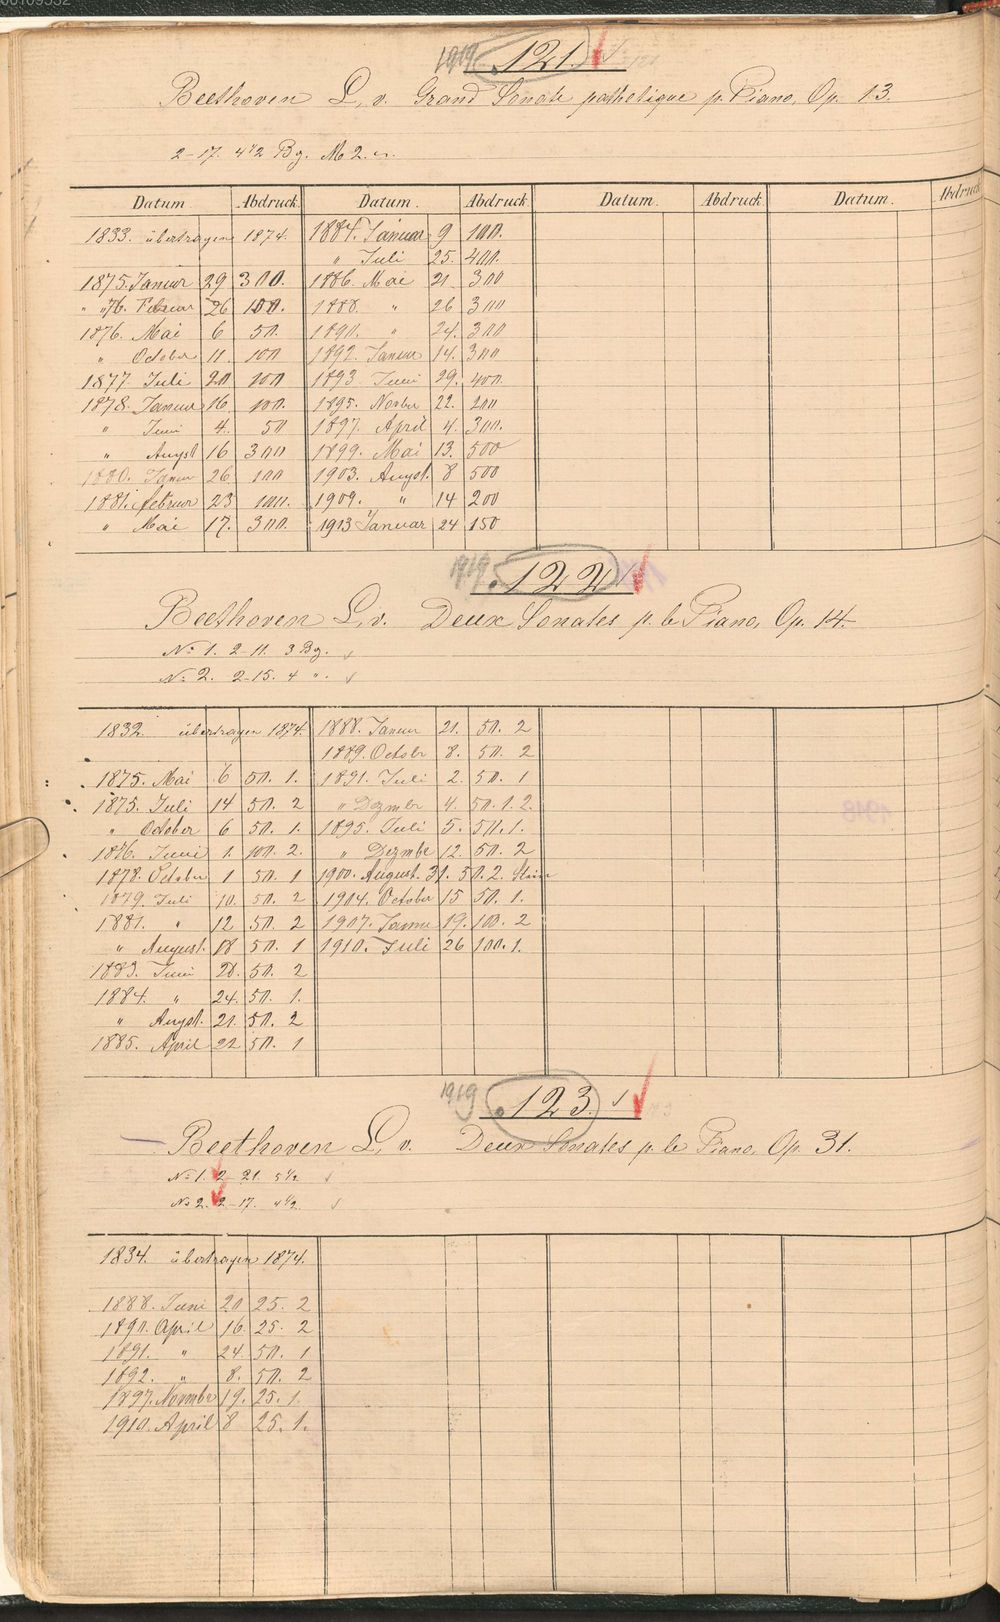 1919. 121.
Beethoven L. v. Grand Sonate pathetique p. Piano, Op. 13.
2–17. 4 1/2 Bg. M 2.
Datum Abdruck Datum. Abdruck Datum. Abdruck Datum. Abdruck
1833. übertragen 1874. 1884. Januar 9 100.
" Juli 25. 400.
1875. Januar 29 300. 1886. Mai 21 300
" 76. Februar 26 100. 1888. " 26 300
1876. Mai 6 50. 1890. " 24. 300
" October 11. 100 1892. Januar 14. 300
1877 Juli 20 100 1893 Juni 29. 400.
1878. Januar 16 100. 1895. Novbr 22. 200
" Juni 4. 50 1897. April 4. 300.
" August 16 300 1899. Mai 13. 500
1880. Januar 26 100 1903. August. 8 500
1881. Februar 23 100. 1909. " 14 200
" Mai 17. 300. 1913 Januar 24 150
1919. 122
Beethoven L. v. Deux Sonates p. le Piano, Op. 14.
No 1. 2–11. 3 Bg.
No 2. 2–15. 4 ".
1832. übertragen 1874. 1888. Januar 21. 50. 2
1889. Octobr 8. 50. 2
1875. Mai 6 50. 1. 1891. Juli 2. 50. 1
1875. Juli 14 50. 2 " Dezmbr 4. 50. 1. 2.
" October 6 50. 1. 1895. Juli 5. 50. 1.
1876. Juni 1. 100. 2. " Dezmbr 12. 50. 2
1878. October 1 50. 1 1900. August. 31. 50. 2. Stein
1879. Juli 10. 50. 2 1904. October 15 50. 1.
1881. " 12 50. 2 1907. Januar 19. 100. 2
" August. 18 50. 1 1910. Juli 26 100. 1.
1883. Juni 28. 50. 2
1884. " 24. 50. 1.
" August. 21. 50. 2
1885. April 22 50. 1
1919 123.
Beethoven L. v. Deux Sonates p. le Piano, Op. 31.
No 1. 2–21. 5 1/2
No 2. 2–17. 4 1/2.
1834. übertragen 1874.
1888. Juni 20 25. 2
1890. April 16 25. 2
1891. " 24. 50. 1
1892. " 8. 50. 2
1897. Novmbr 19. 25. 1.
1910. April 8 25. 1.